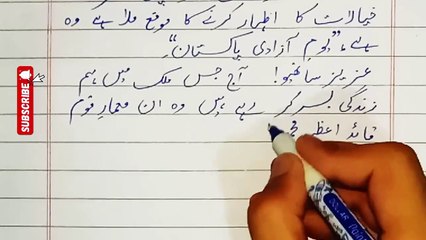 خیالات کا اظہار کرنے کا موقع ملا ہے وہ
ہے، "یومِ آزادی پاکستان"۔
عزیز ساتھیو! آج جس ملک میں ہم
زندگی بسر کر رہے ہیں وہ ان معمارِ قوم
قائد اعظم
SUBSCRIBE